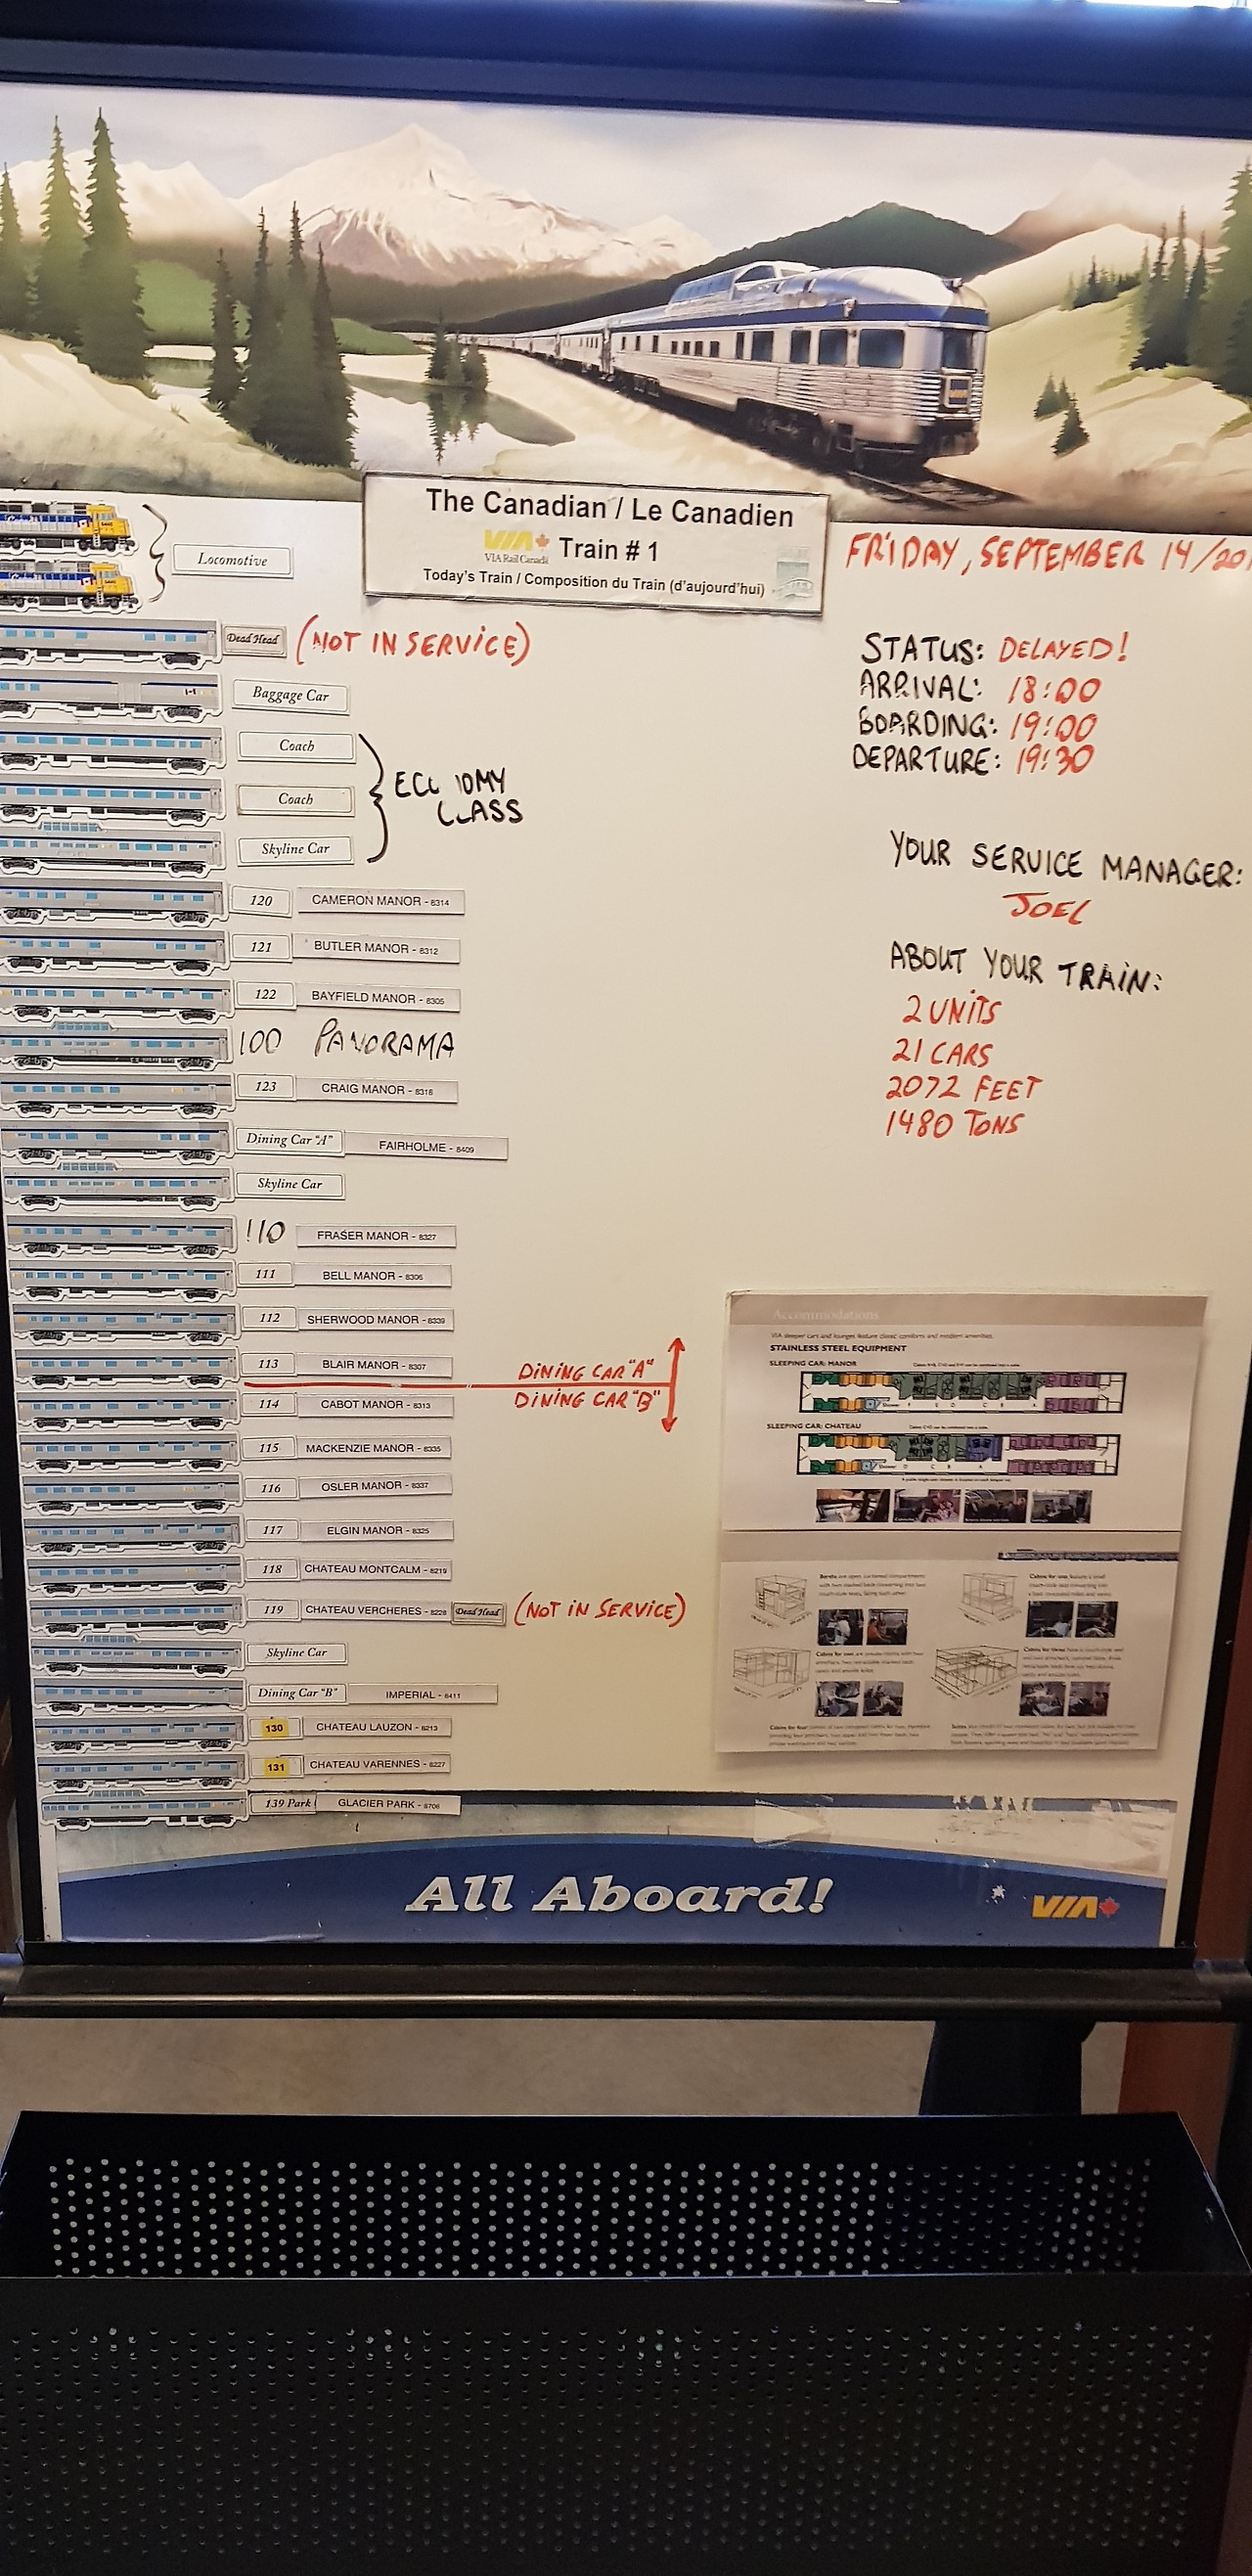 The Canadian / Le Canadien
VIA Rail Canada
Train # 1
Today's Train / Composition du Train (d'aujourd'hui)
FRIDAY, SEPTEMBER 14/20
Locomotive
Dead Head (NOT IN SERVICE)
Baggage Car
Coach
Coach
ECONOMY
CLASS
Skyline Car
120 CAMERON MANOR - 8314
121 BUTLER MANOR - 8312
122 BAYFIELD MANOR - 8305
100 PANORAMA
123 CRAIG MANOR - 8318
Dining Car "A" FAIRHOLME - 8409
Skyline Car
110 FRASER MANOR - 8327
111 BELL MANOR - 8306
112 SHERWOOD MANOR - 8339
113 BLAIR MANOR - 8307
DINING CAR "A"
DINING CAR "B"
114 CABOT MANOR - 8313
115 MACKENZIE MANOR - 8335
116 OSLER MANOR - 8337
117 ELGIN MANOR - 8325
118 CHATEAU MONTCALM - 8219
119 CHATEAU VERCHERES - 8228 Dead Head (NOT IN SERVICE)
Skyline Car
Dining Car "B" IMPERIAL - 8411
130 CHATEAU LAUZON - 8213
131 CHATEAU VARENNES - 8227
139 Park GLACIER PARK - 8708
STATUS: DELAYED!
ARRIVAL: 18:00
BOARDING: 19:00
DEPARTURE: 19:30
YOUR SERVICE MANAGER:
JOEL
ABOUT YOUR TRAIN:
2 UNITS
21 CARS
2072 FEET
1480 TONS
Accommodations
VIA sleeper cars and lounges feature classic comforts and modern amenities.
STAINLESS STEEL EQUIPMENT
SLEEPING CAR: MANOR
SLEEPING CAR: CHATEAU
All Aboard!
VIA